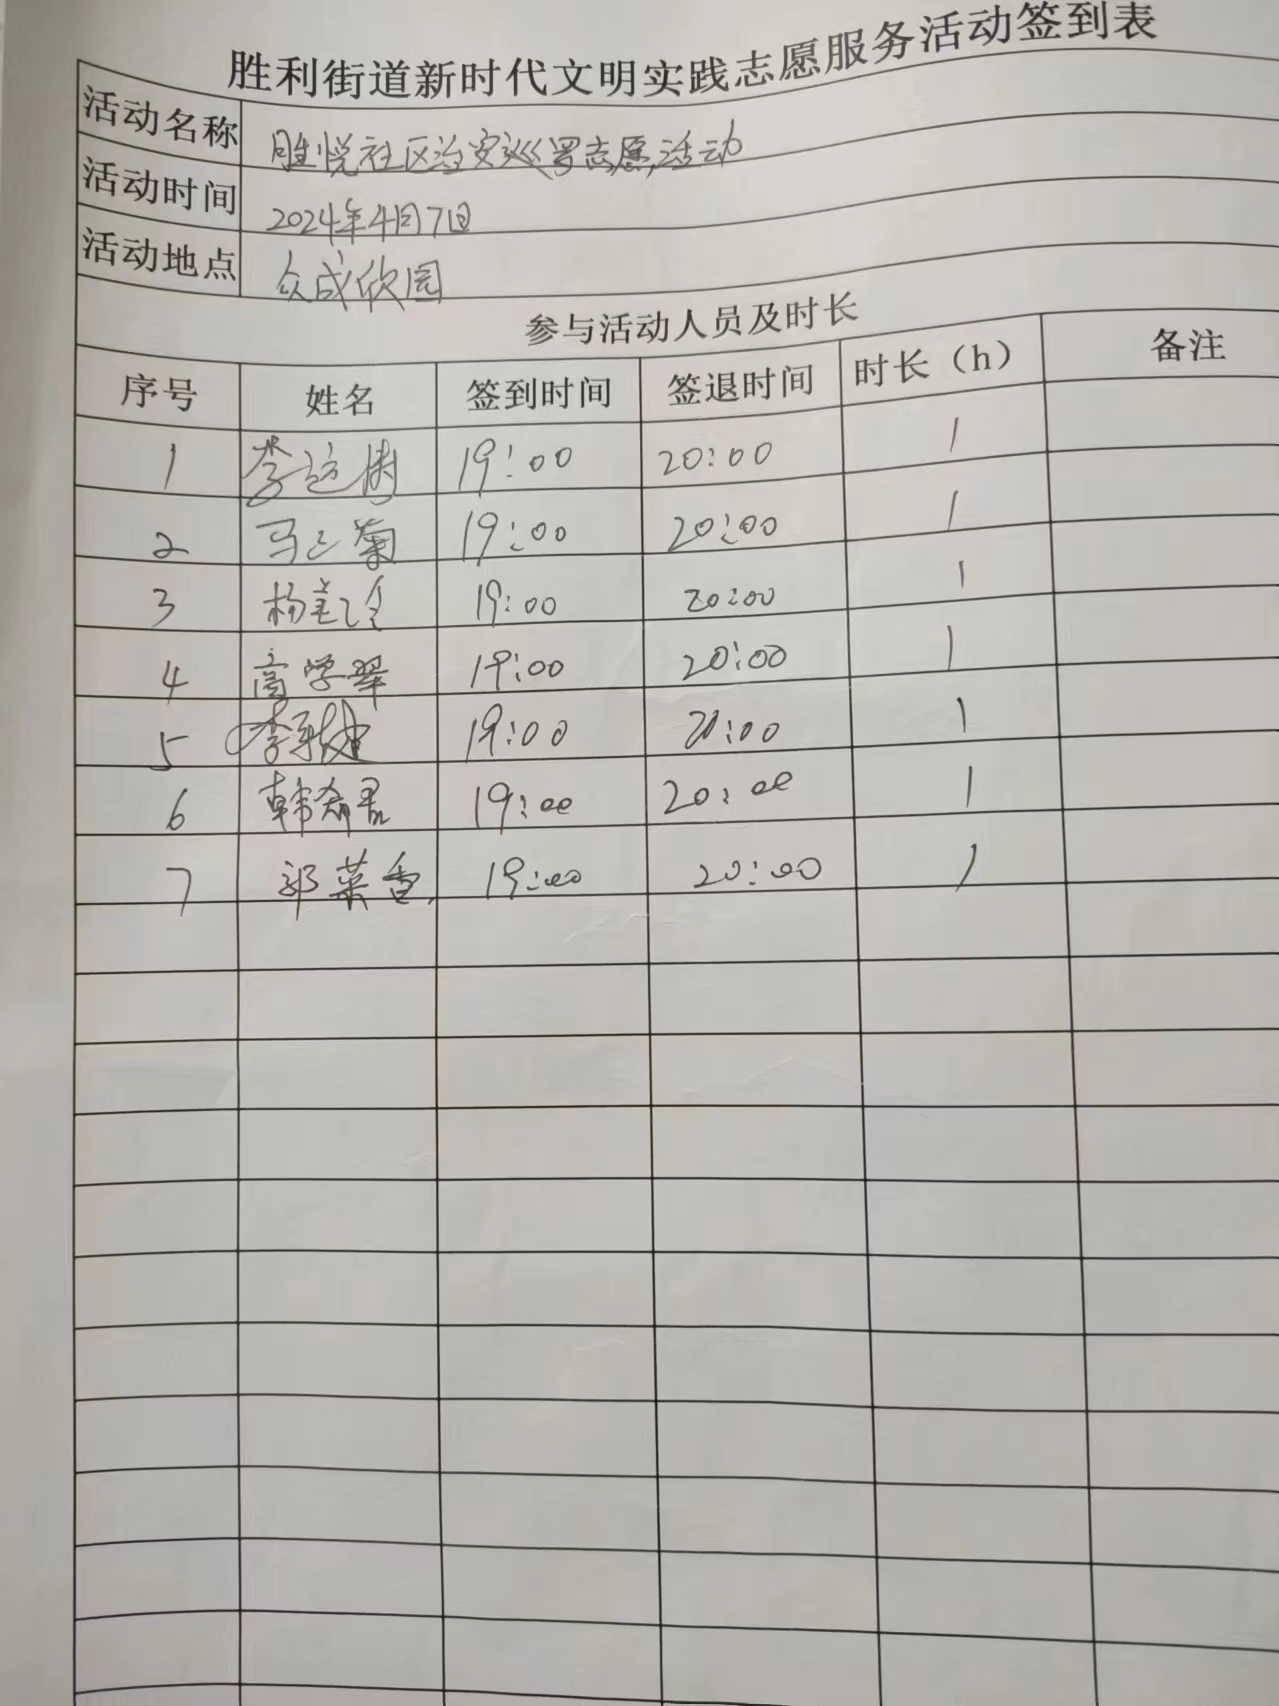 胜利街道新时代文明实践志愿服务活动签到表
活动名称 胜悦社区治安巡逻志愿活动
活动时间 2024年4月7日
活动地点 众成欣园
参与活动人员及时长
序号 姓名 签到时间 签退时间 时长（h） 备注
1 李 19:00 20:00 1
2 马 菊 19:00 20:00 1
3 杨 19:00 20:00 1
4 高学翠 19:00 20:00 1
5 李 19:00 20:00 1
6 韩希君 19:00 20:00 1
7 郭菜香 19:00 20:00 1